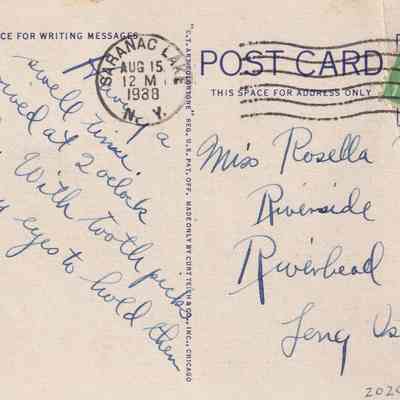 CE FOR WRITING MESSAGES
SARANAC LAKE
AUG 15
12 M
1938
N. Y.
Having a
swell time.
rived at 2 oclock
With tooth picks
eyes to hold them
"C.T. ART-COLORTONE" REG. U.S. PAT. OFF. MADE ONLY BY CURT TEICH & CO., INC., CHICAGO
POST CARD
THIS SPACE FOR ADDRESS ONLY
Miss Rosella
Riverside
Riverhead
Long Is
2024